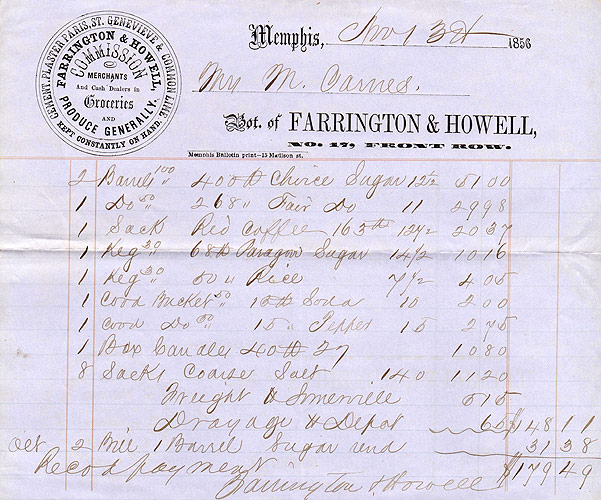 CEMENT, PLASTER PARIS, ST. GENEVIEVE & COMMON LIME
KEPT CONSTANTLY ON HAND.
FARRINGTON & HOWELL,
COMMISSION
MERCHANTS
And Cash Dealers in
Groceries
AND
PRODUCE GENERALLY.
Memphis, Nov 3d 1856
Mr M. Carnes.
Bot. of FARRINGTON & HOWELL,
NO. 17, FRONT ROW.
Memphis Bulletin print—15 Madison st.
2 Barrels 100 400 lb Choice Sugar 12 1/2 51 00
1 Do 50 268 " Fair Do 11 29 98
1 Sack Rio Coffee 163 lb 12 1/2 20 37
1 Keg 30 68 lb Paragon Sugar 14 1/2 10 16
1 Keg 30 50 " Rice 7 1/2 4 05
1 Bucket 50 15 lb Soda 10 2 00
1 Do 50 15 " Pepper 15 2 75
1 Box Candles 40 lb 27 10 80
8 Sacks Coarse Salt 140 11 20
Freight to Somerville 5 15
Drayage to Depot 65 $148 11
Oct 2 Bill 1 Barrel Sugar 31 38
Recd payment $179 49
Farrington & Howell